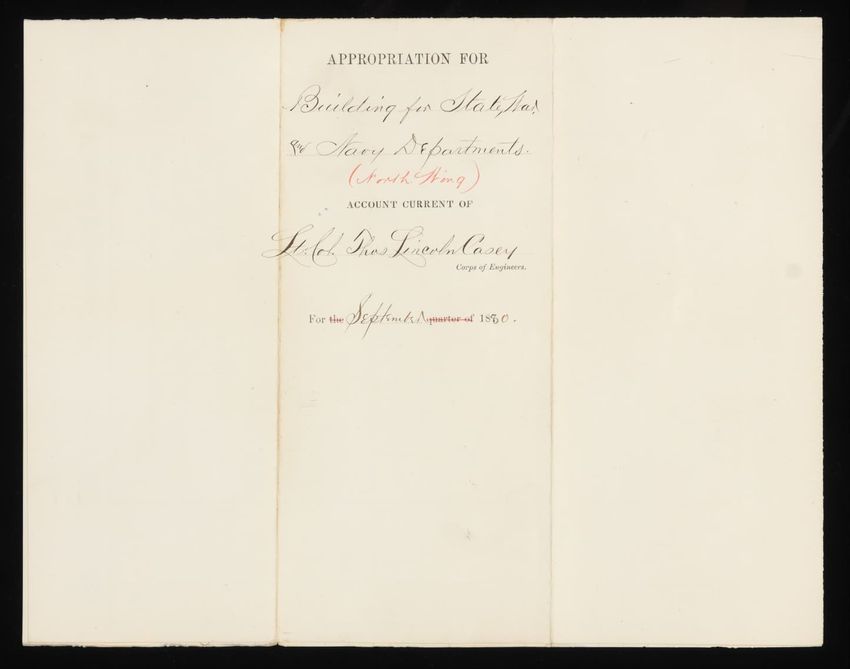 APPROPRIATION FOR
Building for State, War,
and Navy Departments.
(North Wing)
ACCOUNT CURRENT OF
Lt. Col. Thos Lincoln Casey
Corps of Engineers.
For the September quarter of 1880.